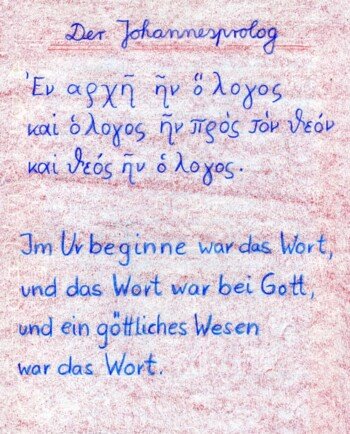 Der Johannesprolog
Ἐν αρχῆ ἦν ὅ λογος
καὶ ὁ λογος ἦν πρὸς τὸν θεόν
καὶ θεός ἦν ὁ λογος.
Im Urbeginne war das Wort,
und das Wort war bei Gott,
und ein göttliches Wesen
war das Wort.